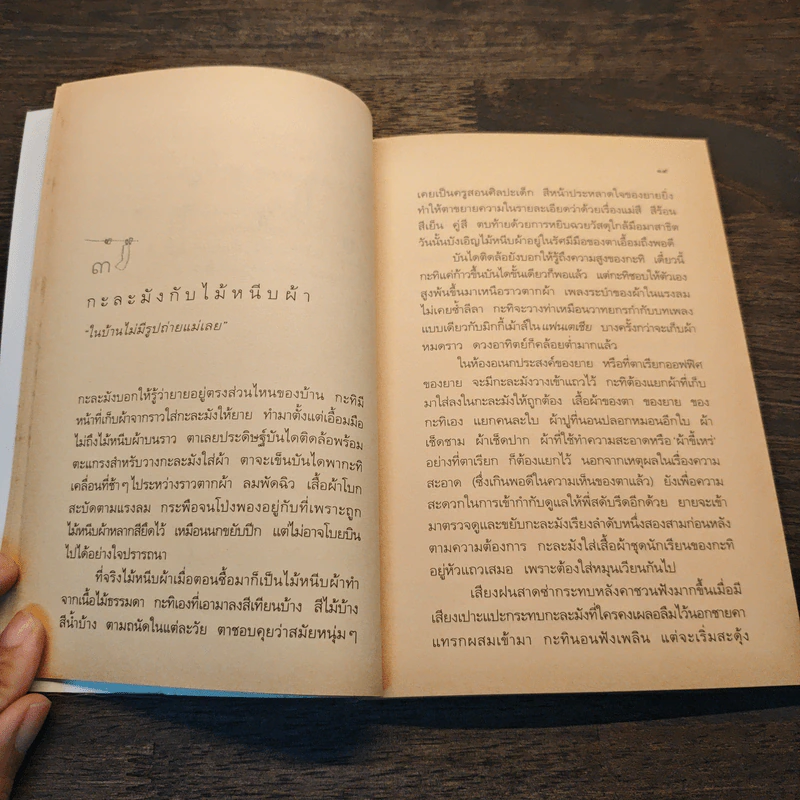 ๓
กะละมังกับไม้หนีบผ้า
"ในบ้านไม่มีรูปถ่ายแม่เลย"
กะละมังบอกให้รู้ว่ายายอยู่ตรงส่วนไหนของบ้าน กะทิมี
หน้าที่เก็บผ้าจากราวใส่กะละมังให้ยาย ทำมาตั้งแต่เอื้อมมือ
ไม่ถึงไม้หนีบผ้าบนราว ตาเลยประดิษฐ์บันไดติดล้อพร้อม
ตะแกรงสำหรับวางกะละมังใส่ผ้า ตาจะเข็นบันไดพากะทิ
เคลื่อนที่ช้าๆ ไประหว่างราวตากผ้า ลมพัดฉิว เสื้อผ้าโบก
สะบัดตามแรงลม กระพือจนโป่งพองอยู่กับที่เพราะถูก
ไม้หนีบผ้าหลากสียึดไว้ เหมือนนกขยับปีก แต่ไม่อาจโบยบิน
ไปได้อย่างใจปรารถนา
ที่จริงไม้หนีบผ้าเมื่อตอนซื้อมาก็เป็นไม้หนีบผ้าทำ
จากเนื้อไม้ธรรมดา กะทิเองที่เอามาลงสีเทียนบ้าง สีไม้บ้าง
สีน้ำบ้าง ตามถนัดในแต่ละวัย ตาชอบคุยว่าสมัยหนุ่มๆ
๑๙
เคยเป็นครูสอนศิลปะเด็ก สีหน้าประหลาดใจของยายยิ่ง
ทำให้ตาขยายความในรายละเอียดว่าด้วยเรื่องแม่สี สีร้อน
สีเย็น คู่สี ตบท้ายด้วยการหยิบฉวยวัสดุใกล้มือมาสาธิต
วันนั้นบังเอิญไม้หนีบผ้าอยู่ในรัศมีมือของตาเอื้อมถึงพอดี
บันไดติดล้อยังบอกให้รู้ถึงความสูงของกะทิ เดี๋ยวนี้
กะทิแค่ก้าวขึ้นบันไดขั้นเดียวก็พอแล้ว แต่กะทิชอบให้ตัวเอง
สูงพ้นขึ้นมาเหนือราวตากผ้า เพลงระบำของผ้าในแรงลม
ไม่เคยซ้ำลีลา กะทิจะวางท่าเหมือนวาทยกรกำกับบทเพลง
แบบเดียวกับมิกกี้เม้าส์ใน แฟนเตเชีย บางครั้งกว่าจะเก็บผ้า
หมดราว ดวงอาทิตย์ก็คล้อยต่ำมากแล้ว
ในห้องอเนกประสงค์ของยาย หรือที่ตาเรียกออฟฟิศ
ของยาย จะมีกะละมังวางเข้าแถวไว้ กะทิต้องแยกผ้าที่เก็บ
มาใส่ลงในกะละมังให้ถูกต้อง เสื้อผ้าของตา ของยาย ของ
กะทิเอง แยกคนละใบ ผ้าปูที่นอนปลอกหมอนอีกใบ ผ้า
เช็ดชาม ผ้าเช็ดปาก ผ้าที่ใช้ทำความสะอาดหรือ 'ผ้าขี้เหร่'
อย่างที่ตาเรียก ก็ต้องแยกไว้ นอกจากเหตุผลในเรื่องความ
สะอาด (ซึ่งเกินพอดีในความเห็นของตาแล้ว) ยังเพื่อความ
สะดวกในการเข้ากำกับดูแลให้พี่สดับรีดอีกด้วย ยายจะเข้า
มาตรวจดูและขยับกะละมังเรียงลำดับหนึ่งสองสามก่อนหลัง
ตามความต้องการ กะละมังใส่เสื้อผ้าชุดนักเรียนของกะทิ
อยู่หัวแถวเสมอ เพราะต้องใส่หมุนเวียนกันไป
เสียงฝนสาดซ่ากระทบหลังคาชวนฟังมากขึ้นเมื่อมี
เสียงเปาะแปะกระทบกะละมังที่ใครคงเผลอลืมไว้นอกชายคา
แทรกผสมเข้ามา กะทินอนฟังเพลิน แต่จะเริ่มสะดุ้ง